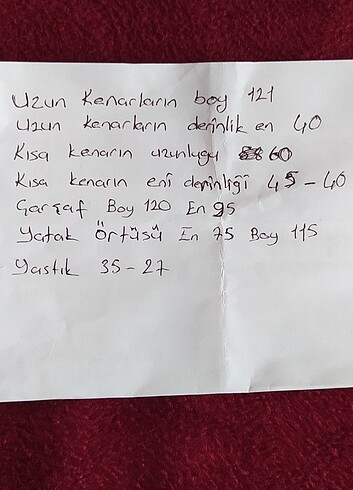 Uzun Kenarların boy 121
Uzun kenarların derinlik en 40
Kısa kenarın uzunlugu 60
Kısa kenarın eni derinliği 45-40
Çarşaf Boy 120 En 95
Yatak Örtüsü En 75 Boy 115
Yastık 35-27